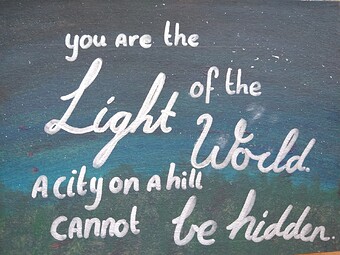 you are the
Light of the
World.
A city on a hill
cannot be hidden.